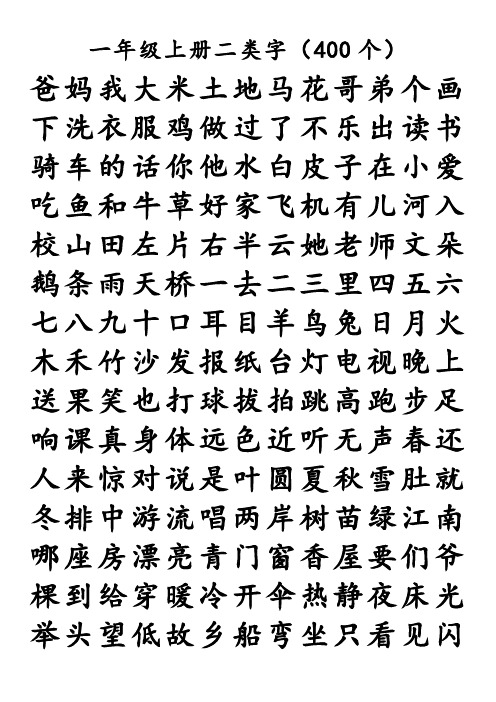 一年级上册二类字（400个）
爸妈我大米土地马花哥弟个画
下洗衣服鸡做过了不乐出读书
骑车的话你他水白皮子在小爱
吃鱼和牛草好家飞机有儿河入
校山田左片右半云她老师文朵
鹅条雨天桥一去二三里四五六
七八九十口耳目羊鸟兔日月火
木禾竹沙发报纸台灯电视晚上
送果笑也打球拔拍跳高跑步足
响课真身体远色近听无声春还
人来惊对说是叶圆夏秋雪肚就
冬排中游流唱两岸树苗绿江南
哪座房漂亮青门窗香屋要们爷
棵到给穿暖冷开伞热静夜床光
举头望低故乡船弯坐只看见闪